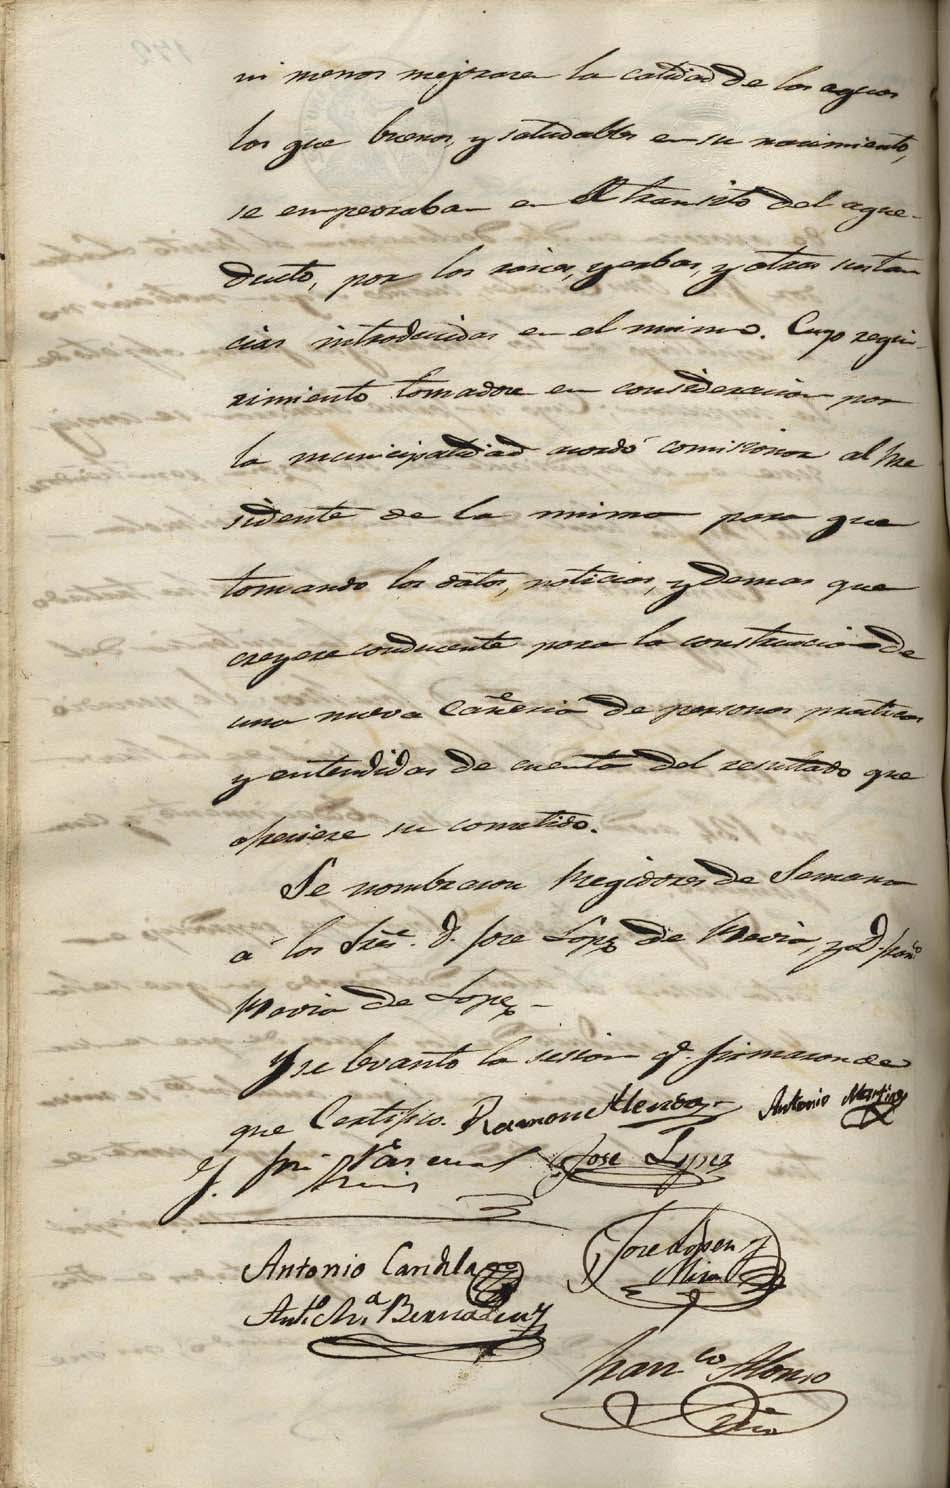 ni menos mejorara la calidad de las aguas
las que buenas, y saludables en su nacimiento,
se empeoraban en el transito del aque-
ducto, por las raices, yerbas, y otras sustan
cias introducidas en el mismo. Cuyo reque-
rimiento tomadose en consideracion por
la municipalidad acordó comisionar al Pre
sidente de la misma para que
tomando los datos, noticias, y demas que
creyere conducente para la construccion de
una nueva Cañeria de personas practicas
y entendidas de cuenta del resultado que
ofreciere su cometido.
Se nombraron Regidores de Semana
á los Sres. D. Jose Lopez de Maria, y D. Franco
Maria de Lopez
Y se levantó la sesion q. firmaron de
que Certifico. Ramon Alenda Antonio Martinez
Pascual Jose Lopez
Antonio Candela Jose Lopez
Mira
Anto. Ma. Bernabeu
Franco Alonso
Srio